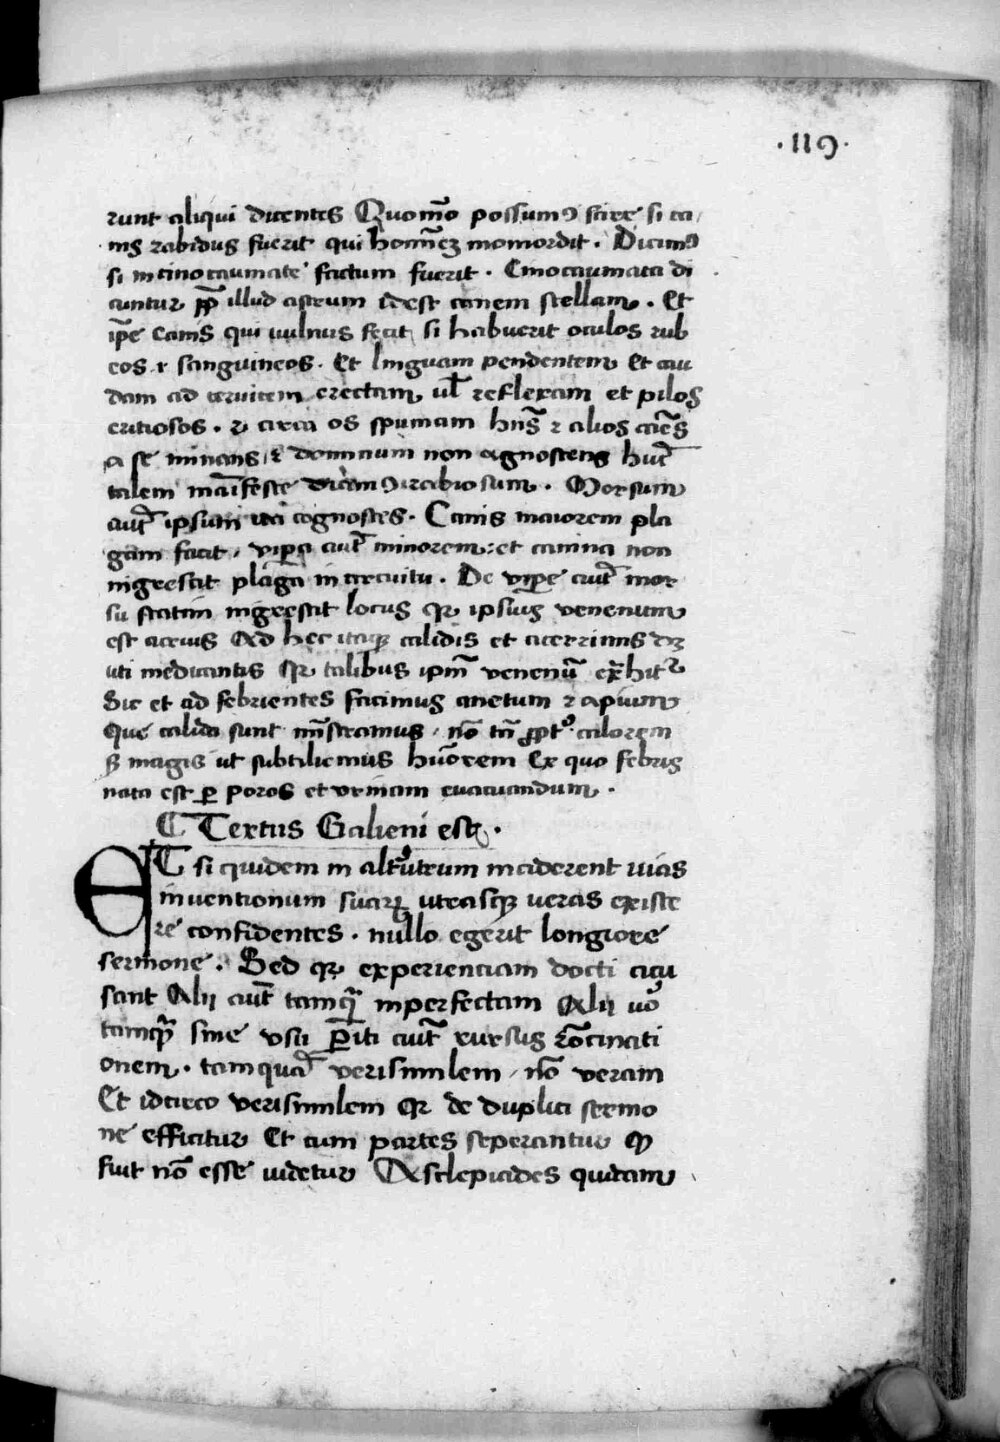 ·119·
runt aliqui dicentes Quomo᷃ possumꝰ scire si ca
nis rabidus fuerit qui homi᷃eʒ momordit. Dicimꝰ
si in cinocaumate factum fuerit. Cinocaumata di
cuntur ꝓp᷃ illud astrum idest canem stellam. Et
ip᷃e canis qui vulnus fecit si habuerit oculos rub
eos ⁊ sanguineos. Et linguam pendentem Et cau
dam ad cervicem erectam ul᷃ reflexam et pilos
⁊ circa os spumam hn᷃s ⁊ alios
a se minans ⁊ dominum non agnoscens
talem ma᷃ifeste dicamꝰ rabiosum. Morsum
aut᷃ ipsum ita cognosces. Canis maiorem pla
gam facit, vipera aut᷃ minorem: et canina non
nigrescit plaga in circuitu. De vipere aut᷃ mor
su statim nigrescit locus qꝛ ipsius venenum
est acrius Ad hec itaqꝫ calidis et acerrimis dʒ
uti medicantis qꝛ talibus ip᷃m venenu᷃
Sic et ad febrientes facimus anetum ⁊ apium
Que calida sunt mi᷃stramus, no᷃ tn᷃ ꝓptꝰ calorem
sʒ magis ut subtiliemus hu᷃orem Ex quo febris
nata est ꝑ poros et urinam evacuandum.
⸿ Textus Galieni est.
ET si quidem in alt᷃utrum inciderent vias
inventionum suarꝝ utrasqꝫ veras existe
re confidentes. nullo egerit longiore
sermone. Sed qꝛ experienciam docti acu
sant Alij aut᷃ tamqᷓ inperfectam Alij vo᷃
tamqᷓ sine usu ꝑiti aut᷃ rursus ro᷃cinati
onem. tamqua᷃ verisimilem, no᷃ veram
Et idcirco verisimilem qꝛ de duplici sermo
ne efficitur Et cum partes seperantur
fuit no᷃ esse videtur Asclepiades quidam